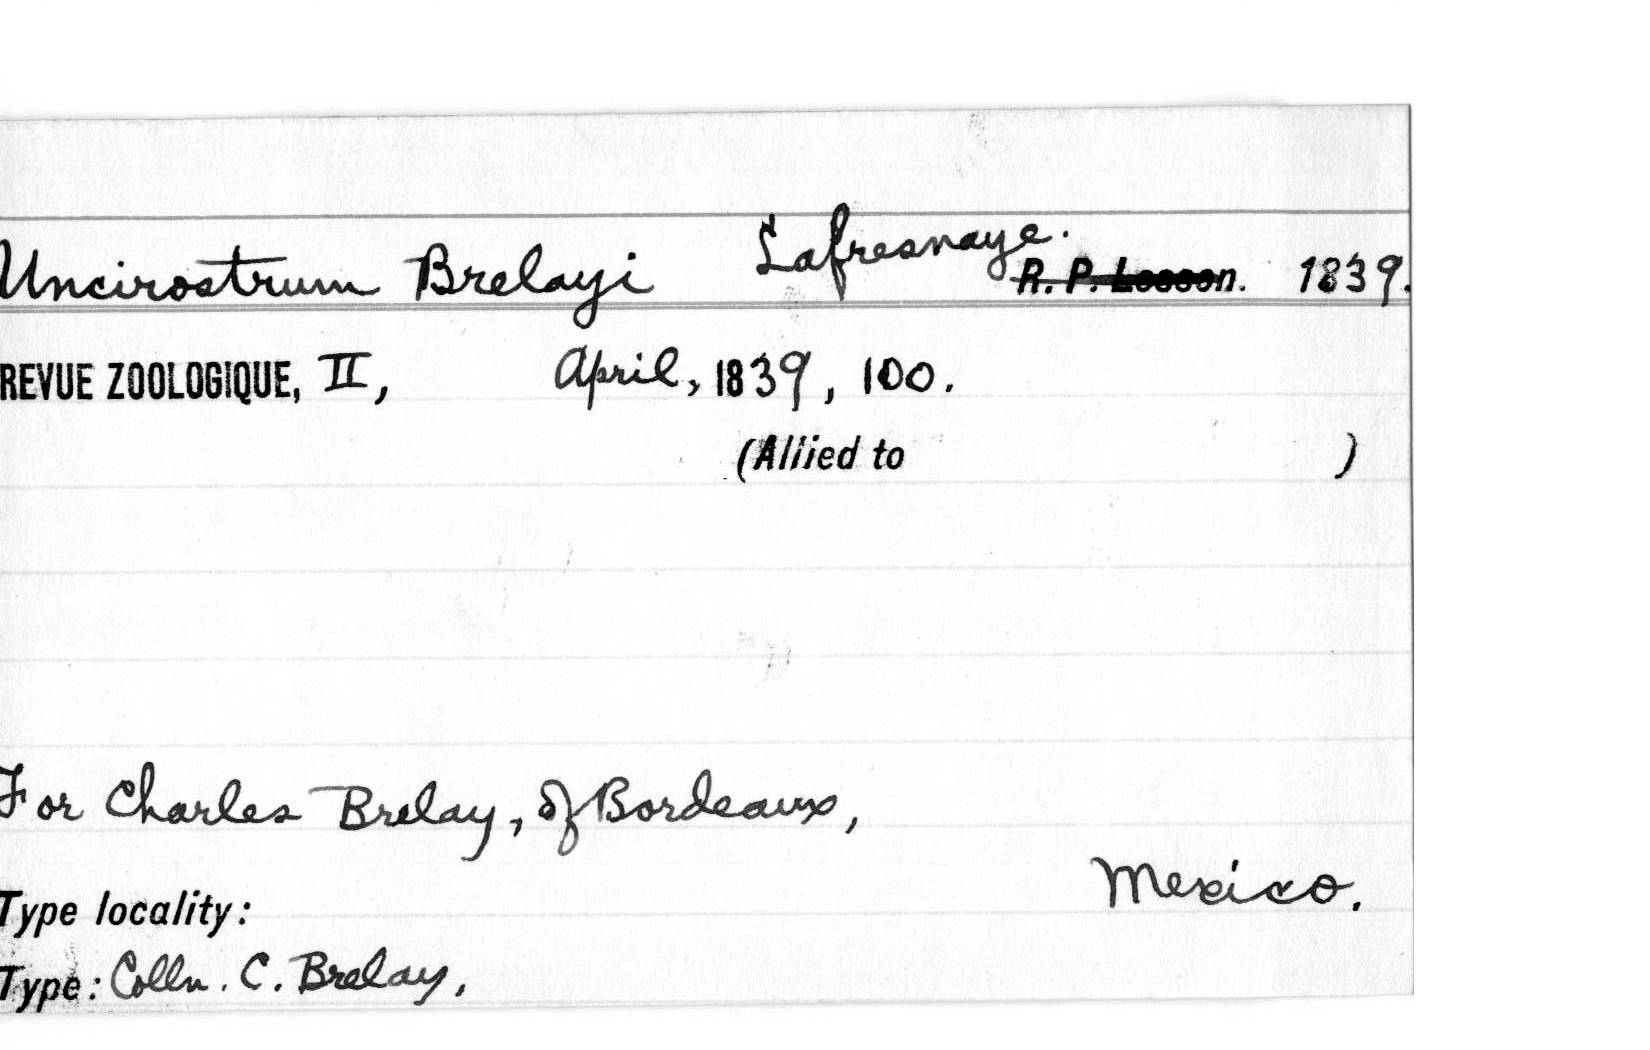 Uncirostrum Brelayi Lafresnaye. R. P. Lesson. 1839.
REVUE ZOOLOGIQUE, II, April, 1839, 100.
(Allied to )
For Charles Brelay, of Bordeaux,
Mexico.
Type locality:
Type: Colln. C. Brelay,